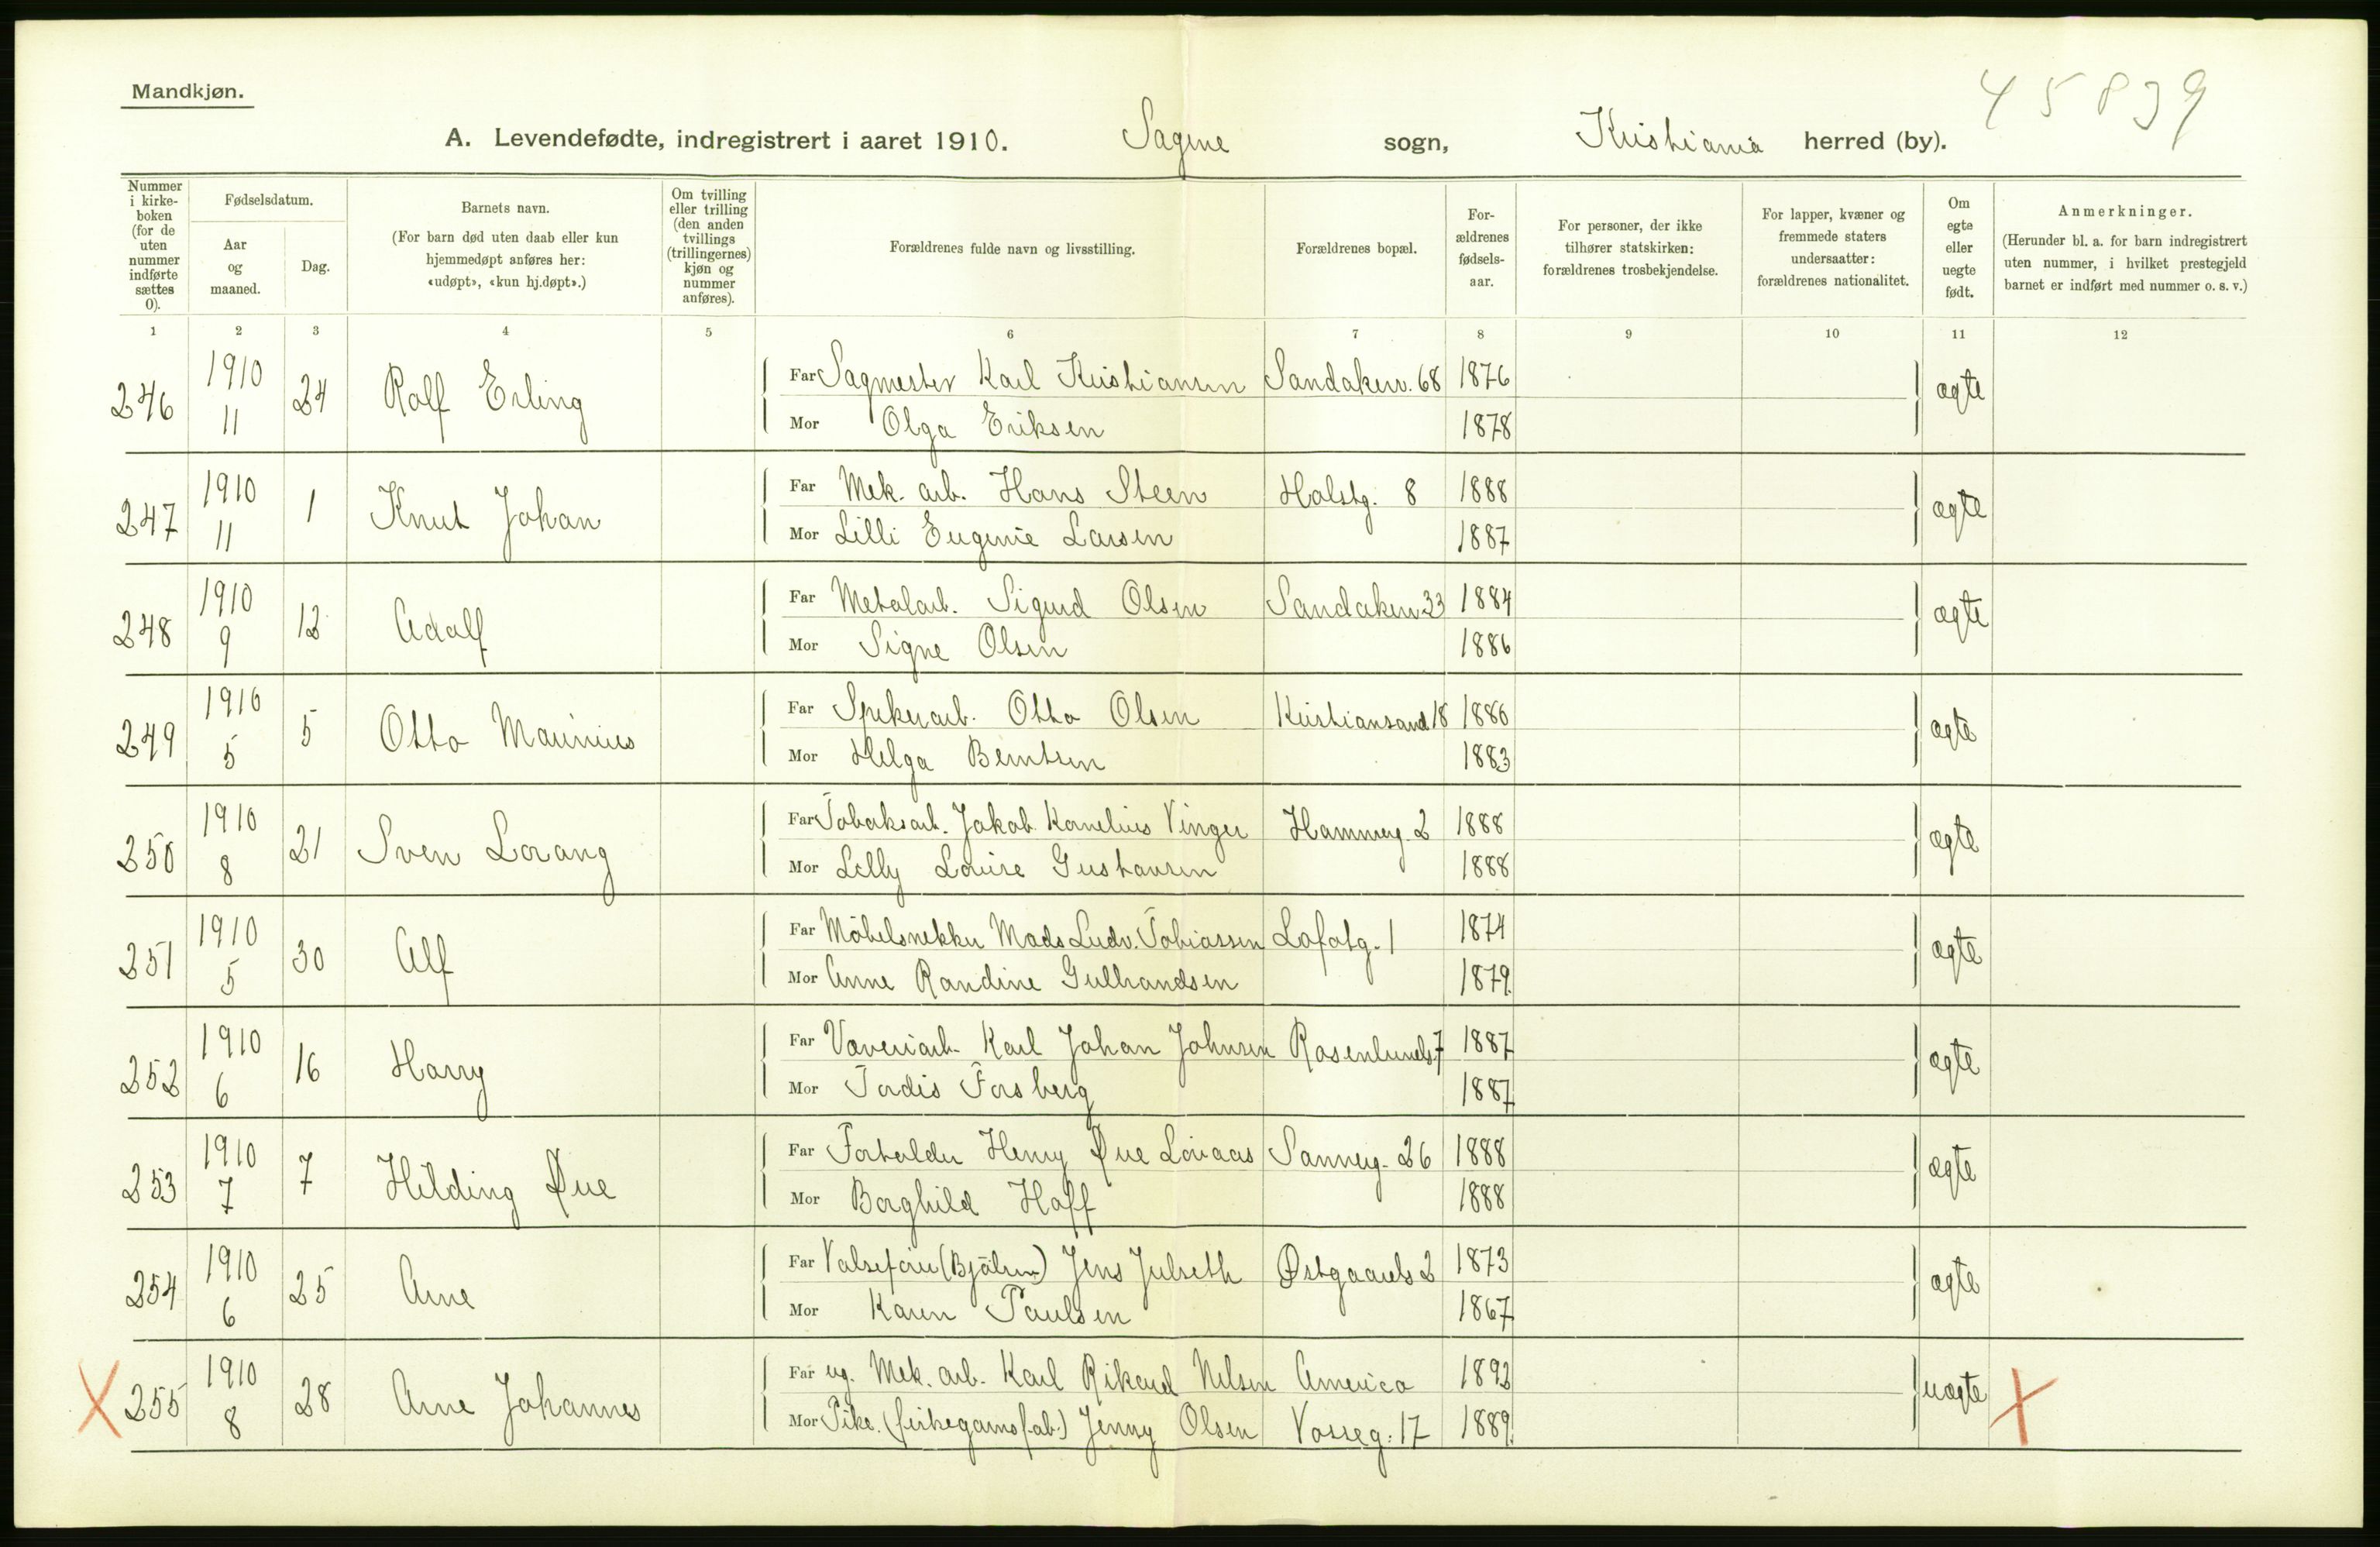 Mandkjøn.
45839
A. Levendefødte, indregistrert i aaret 1910. Sagene sogn, Kristiania herred (by).
Nummer i kirkeboken (for de uten nummer indførte sættes 0).
Fødselsdatum.
Aar og maaned.
Dag.
Barnets navn.
(For barn død uten daab eller kun hjemmedøpt anføres her: «udøpt», «kun hj.døpt».)
Om tvilling eller trilling (den anden tvillings (trillingernes) kjøn og nummer anføres).
Forældrenes fulde navn og livsstilling.
Forældrenes bopæl.
For-ældrenes fødsels-aar.
For personer, der ikke tilhører statskirken: forældrenes trosbekjendelse.
For lapper, kvæner og fremmede staters undersaatter: forældrenes nationalitet.
Om egte eller uegte født.
Anmerkninger.
(Herunder bl. a. for barn indregistrert uten nummer, i hvilket prestegjeld barnet er indført med nummer o. s. v.)
1 2 3 4 5 6 7 8 9 10 11 12
246 1910 11 24 Rolf Erling Far Sagmester Karl Kristiansen Sandakerv. 68 1876 ægte
Mor Olga Eriksen 1878
247 1910 11 1 Knut Johan Far Mek. arb. Hans Steen Holstg. 8 1888 ægte
Mor Lilli Eugenie Larsen 1887
248 1910 9 12 Adolf Far Metalarb. Sigurd Olsen Sandakerv 33 1884 ægte
Mor Signe Olsen 1886
249 1910 5 5 Otto Marinius Far Spikerarb. Otto Olsen Kristiansand 18 1886 ægte
Mor Helga Berntsen 1883
250 1910 8 21 Sven Lorang Far Tobaksarb. Jakob Kornelius Vinger Hammerg. 2 1888 ægte
Mor Lilly Louise Gustavsen 1888
251 1910 5 30 Alf Far Möbelsnekker Mads Ludv. Tobiassen Lofotg. 1 1874 ægte
Mor Anne Randine Gulbrandsen 1879
252 1910 6 16 Harry Far Væveriarb. Karl Johan Johnsen Rosenlundg. 7 1887 ægte
Mor Tordis Forsberg 1887
253 1910 7 7 Hilding Øue Far Forholder Henry Øue Loraas Sannerg. 26 1888 ægte
Mor Borghild Hoff 1888
254 1910 6 25 Arne Far Valsefører (Bjølsen) Jens Julseth Østgaards 2 1873 ægte
Mor Karen Paulsen 1867
255 1910 8 28 Arne Johannes Far ug. Mek. arb. Karl Rikard Nilsen America 1892 uægte
Mor Pike. (fiskegarnsfab.) Jenny Olsen Vosseg. 17 1889